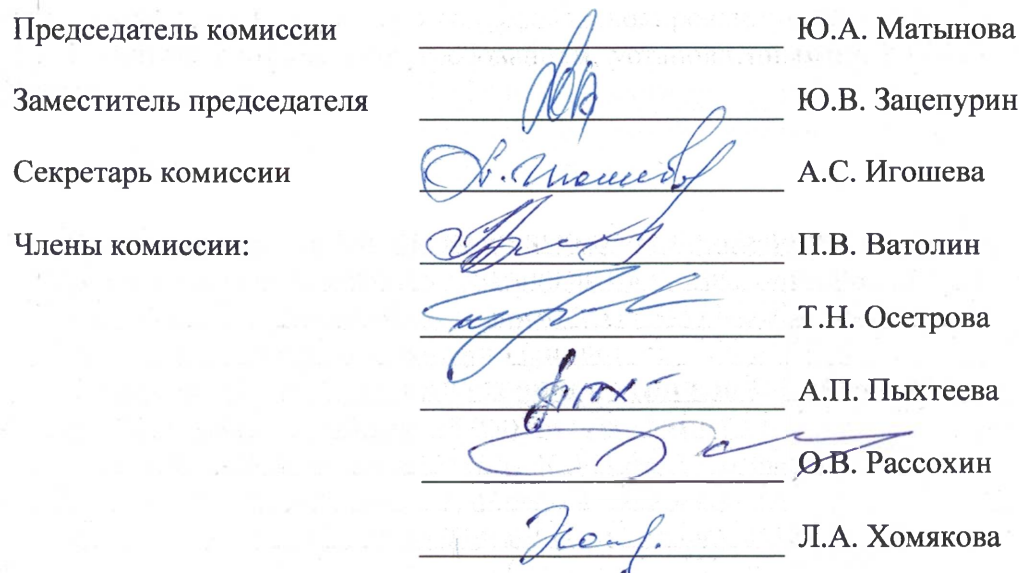 Председатель комиссии Ю.А. Матынова
Заместитель председателя Ю.В. Зацепурин
Секретарь комиссии А.С. Игошева
Члены комиссии: П.В. Ватолин
Т.Н. Осетрова
А.П. Пыхтеева
О.В. Рассохин
Л.А. Хомякова